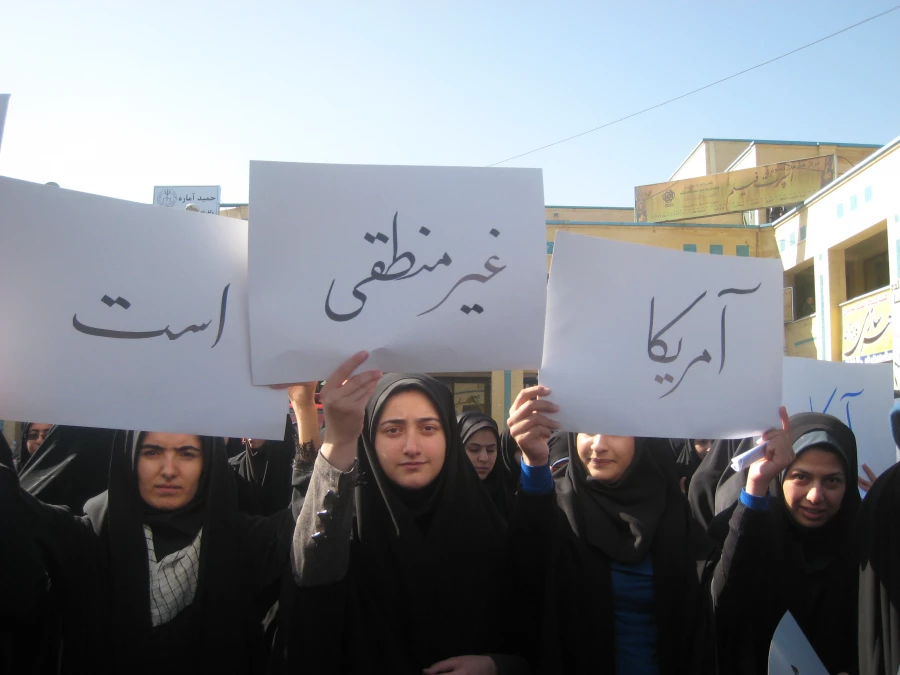 آمریکا
غیر منطقی
است
حمید آماره